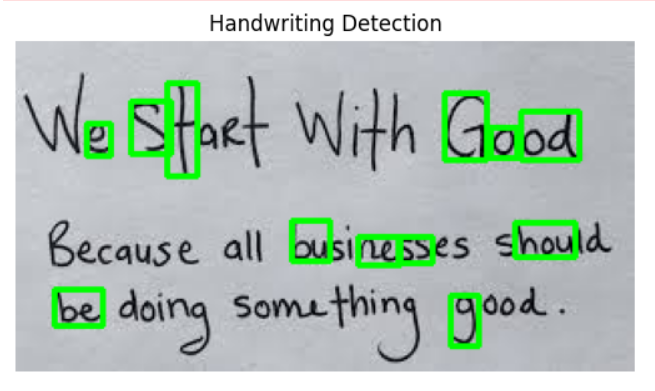 Handwriting Detection
We Start With Good
Because all businesses should
be doing something good.